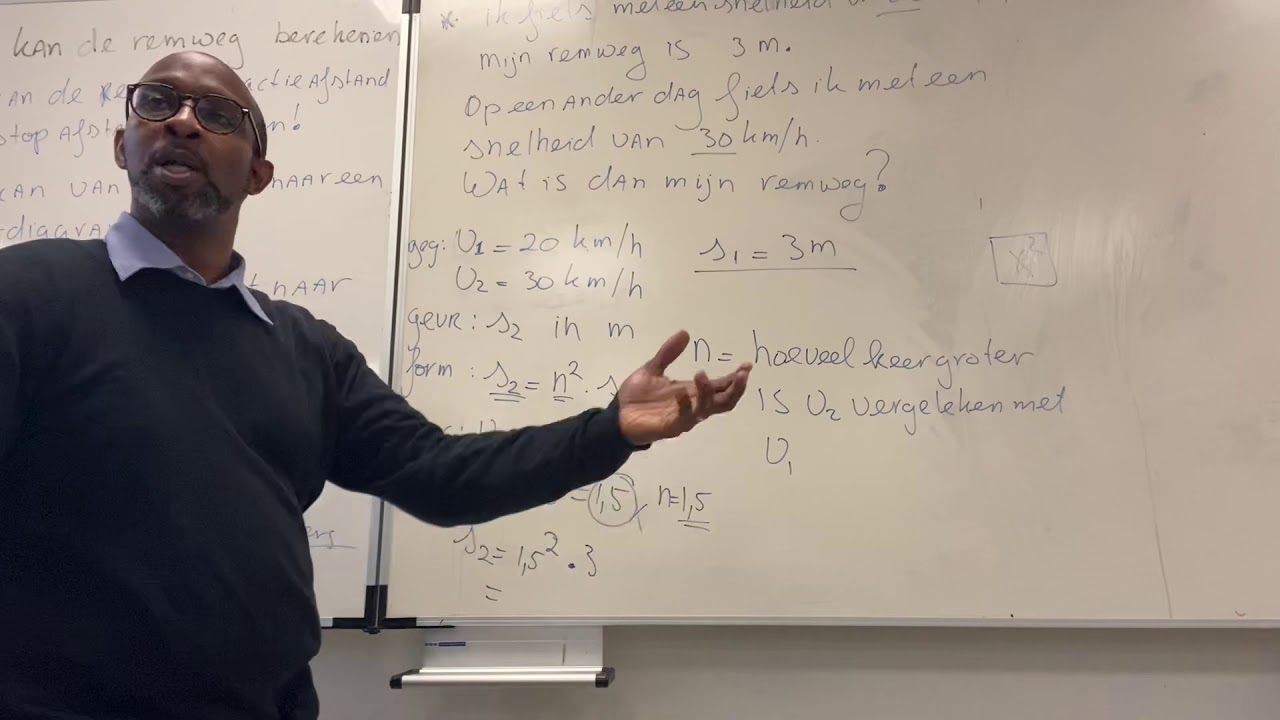 kAn de remweg berekenen
An de
actieAfstand
stop Afst
en!
kAn vAn
nAAr een
diagra
t nAAr
* ik fiels met een snelheid v
mijn remweg is 3 m.
op een Ander dAg fiels ik met een
snelheid vAn 30 km/h.
WAt is dAn mijn remweg?
geg: v1 = 20 km/h
s1 = 3m
x²
v2 = 30 km/h
gevr: s2 in m
form : s2 = n² . s
n = hoeveel keer groter
is v2 vergeleken met
v1
= 1,5 n=1,5
s2 = 1,5² . 3
=